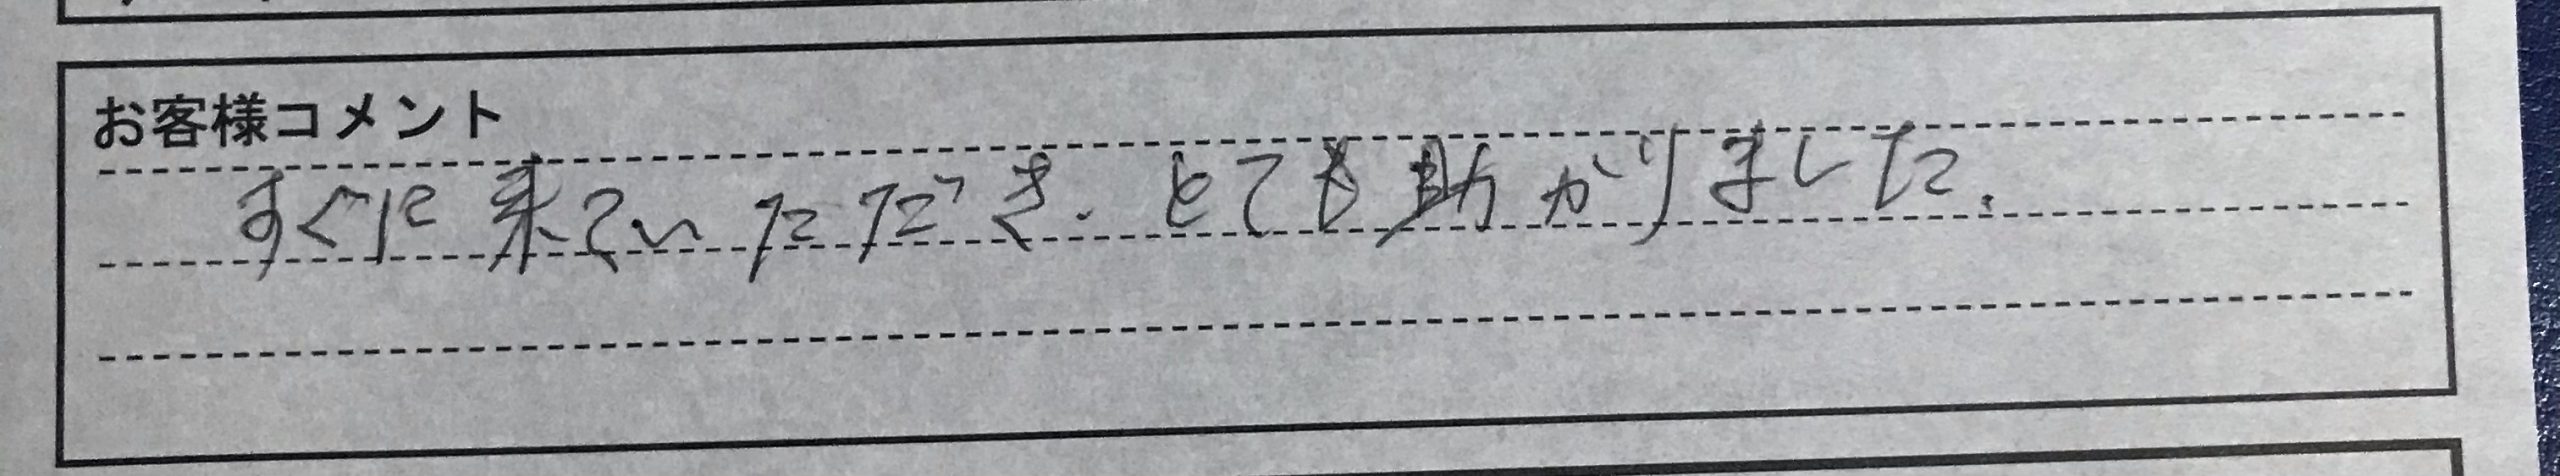 お客様コメント
すぐに来ていただき、とても助かりました.